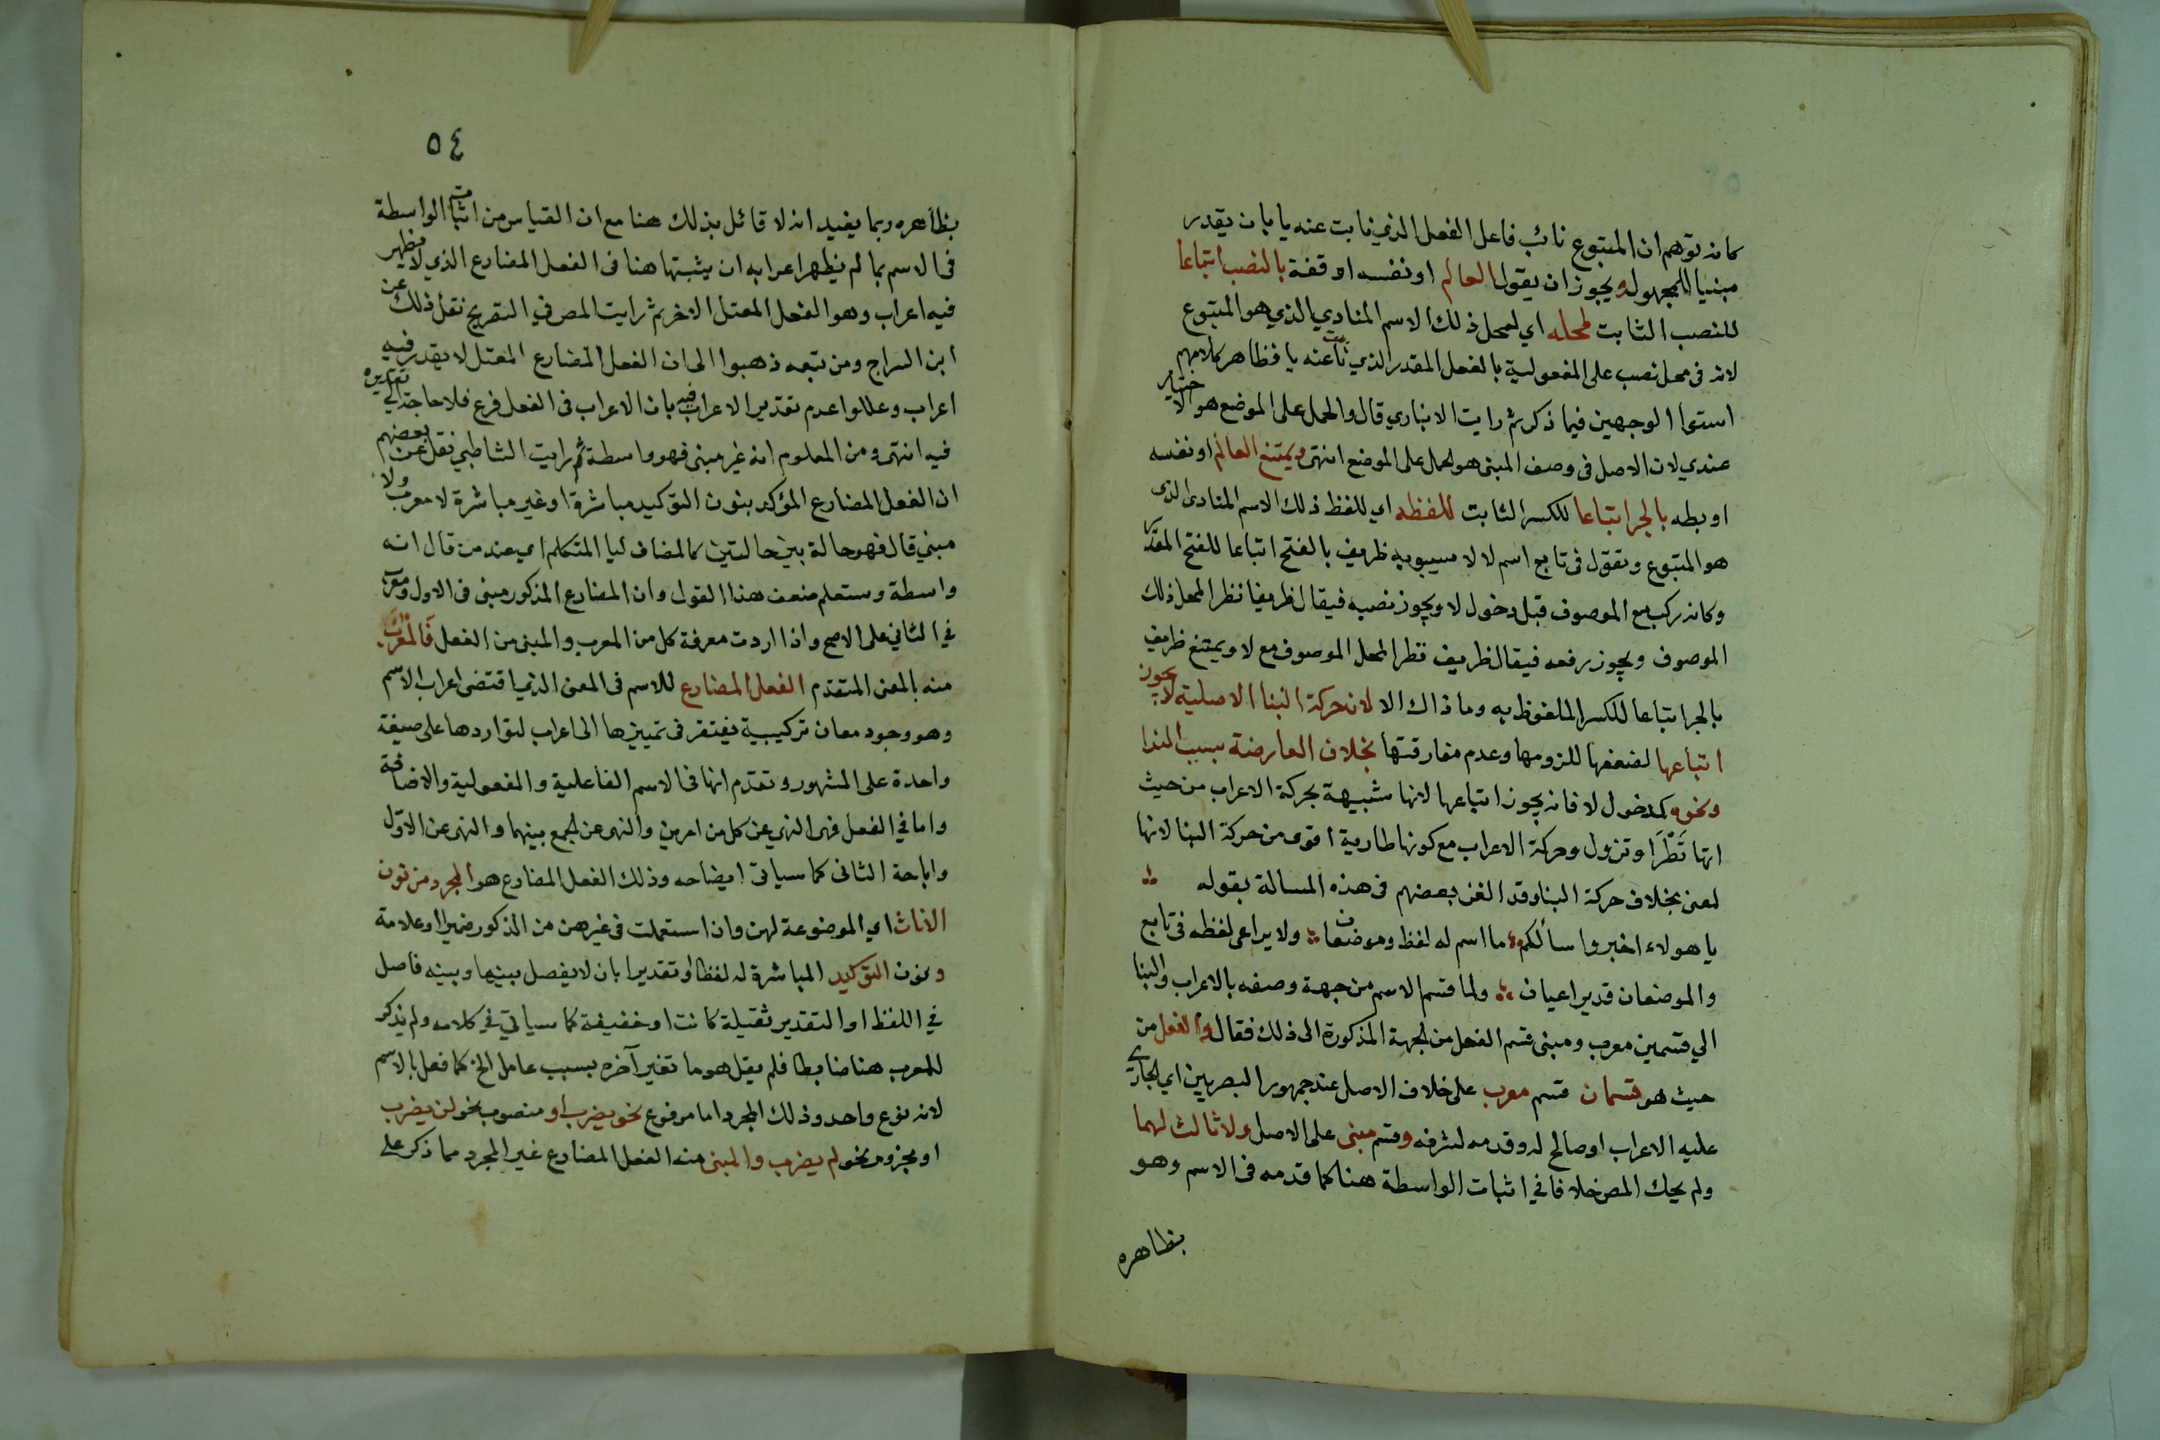 كانه توهم ان المتبوع نائب فاعل الفعل الذي نابت عنه يا بان يقدر
مبنيا للمجهول ويجوز ان يقول العالم او نفسه او قفة بالنصب اتباعا
للنصب الثابت لمحله اي لمحل ذلك الاسم المنادي الذي هو المتبوع
لانه في محل نصب على المفعولية بالفعل المقدر الذي نابت عنه يا فظاهر كلامهم
استوا الوجهين فيما ذكر ثم رايت الانباري قال والحمل على الموضع هو الاختيار
عندي لان الاصل في وصف المبنى هو الحمل على الموضع انتهى ويمتنع العالم او نفسه
او بطه بالجر اتباعا للكسر الثابت للفظه اي للفظ ذلك الاسم المنادى الذى
هو المتبوع وتقول في تابع اسم لا لا سيبويه ظريف بالفتح اتباعا للفتح المقدر
وكانه ركب مع الموصوف قبل دخول لا ويجوز نصبه فيقال ظريفا نظرا لمحل ذلك
الموصوف ويجوز رفعه فيقال ظريف نظرا لمحل الموصوف مع لا ويمتنع ظريف
بالجر اتباعا للكسر الملفوظ به وما ذاك الا لان حركة البنا الاصلية لا يجوز
اتباعها لضعفها للزومها وعدم مفارقتها بخلاف العارضة بسبب الندا
ونحوه كدخول لا فانه يجوز اتباعها لانها شبيهة بحركة الاعراب من حيث
انها تطرا وتزول وحركة الاعراب مع كونها طارية اقوى من حركة البنا لانها
لمعنى بخلاف حركة البنا وقد الغز بعضهم في هذه المسالة بقوله
يا هولاء اخبروا سائلكم ما اسم له لفظ وموضعان ولا يراعى لفظه في تابع
والموضعان قد يراعيان ولما قسم الاسم من جهة وصفه بالاعراب والبنا
الي قسمين معرب ومبنى قسم الفعل من الجهة المذكورة الى ذلك فقال والفعل من
حيث هو قسمان قسم معرب على خلاف الاصل عند جمهور البصريين اي لجاري
عليه الاعراب او صالح له وقدمه لشرفه وقسم مبنى على الاصل ولا ثالث لهما
ولم يحك المص خلافا في اثبات الواسطة هنا كما قدمه في الاسم وهو
بظاهره
٥٤
بظاهره ربما يفيد انه لا قائل بذلك هنا مع ان القياس من اثبات الواسطة
في الاسم بما لم يظهر اعرابه ان يثبتها هنا في الفعل المضارع الذي لا يظهر
فيه اعراب وهو الفعل المعتل الاخر ثم رايت المص في التصريح نقل ذلك عن
ابن السراج ومن تبعه ذهبوا الى ان الفعل المضارع المعتل لا يقدر فيه
اعراب وعللوا عدم تقدير الاعراب فيه بان الاعراب في الفعل فرع فلا حاجة الي تقديره
فيه انتهى ومن المعلوم انه غير مبنى فهو واسطة ثم رايت الشاطبي نقل عن بعضهم
ان الفعل المضارع المؤكد بنون التوكيد مباشرة او غير مباشرة لا معرب ولا
مبنى قال فهو حالة بين حالتين كالمضاف ليا المتكلم اي عند من قال انه
واسطة وستعلم ضعف هذا القول وان المضارع المذكور مبنى في الاول ومعرب
في الثاني على الاصح واذا اردت معرفة كل من المعرب والمبنى من الفعل فالمعرب
منه بالمعنى المتقدم الفعل المضارع للاسم في المعنى الذي اقتضى اعراب الاسم
وهو وجود معان تركيبية يفتقر في تمييزها الى اعراب لتواردها على صيغة
واحدة على المشهور وتقدم انها في الاسم الفاعلية والمفعولية والاضافة
واما في الفعل فهى النهي عن كل من امرين والنهى عن الجمع بينهما والنهى عن الاول
واباحة الثانى كما سياتى ايضاحه وذلك الفعل المضارع هو المجرد من نون
الاناث اي الموضوعة لهن وان استعملت في غيرهن من الذكور ضميرا او علامة
ونون التوكيد المباشرة له لفظا او تقديرا بان لا يفصل بينها وبينه فاصل
في اللفظ او التقدير ثقيلة كانت او خفيفة كما سياتي في كلامه ولم يذكر
للمعرب هنا ضابطا فلم يقل هو ما تغير آخره بسبب عامل الخ كما فعل بالاسم
لانه نوع واحد وذلك المجرد اما مرفوع نحو يضرب او منصوب نحو لن يضرب
او مجزوم نحو لم يضرب والمبنى منه الفعل المضارع غير المجرد مما ذكر على